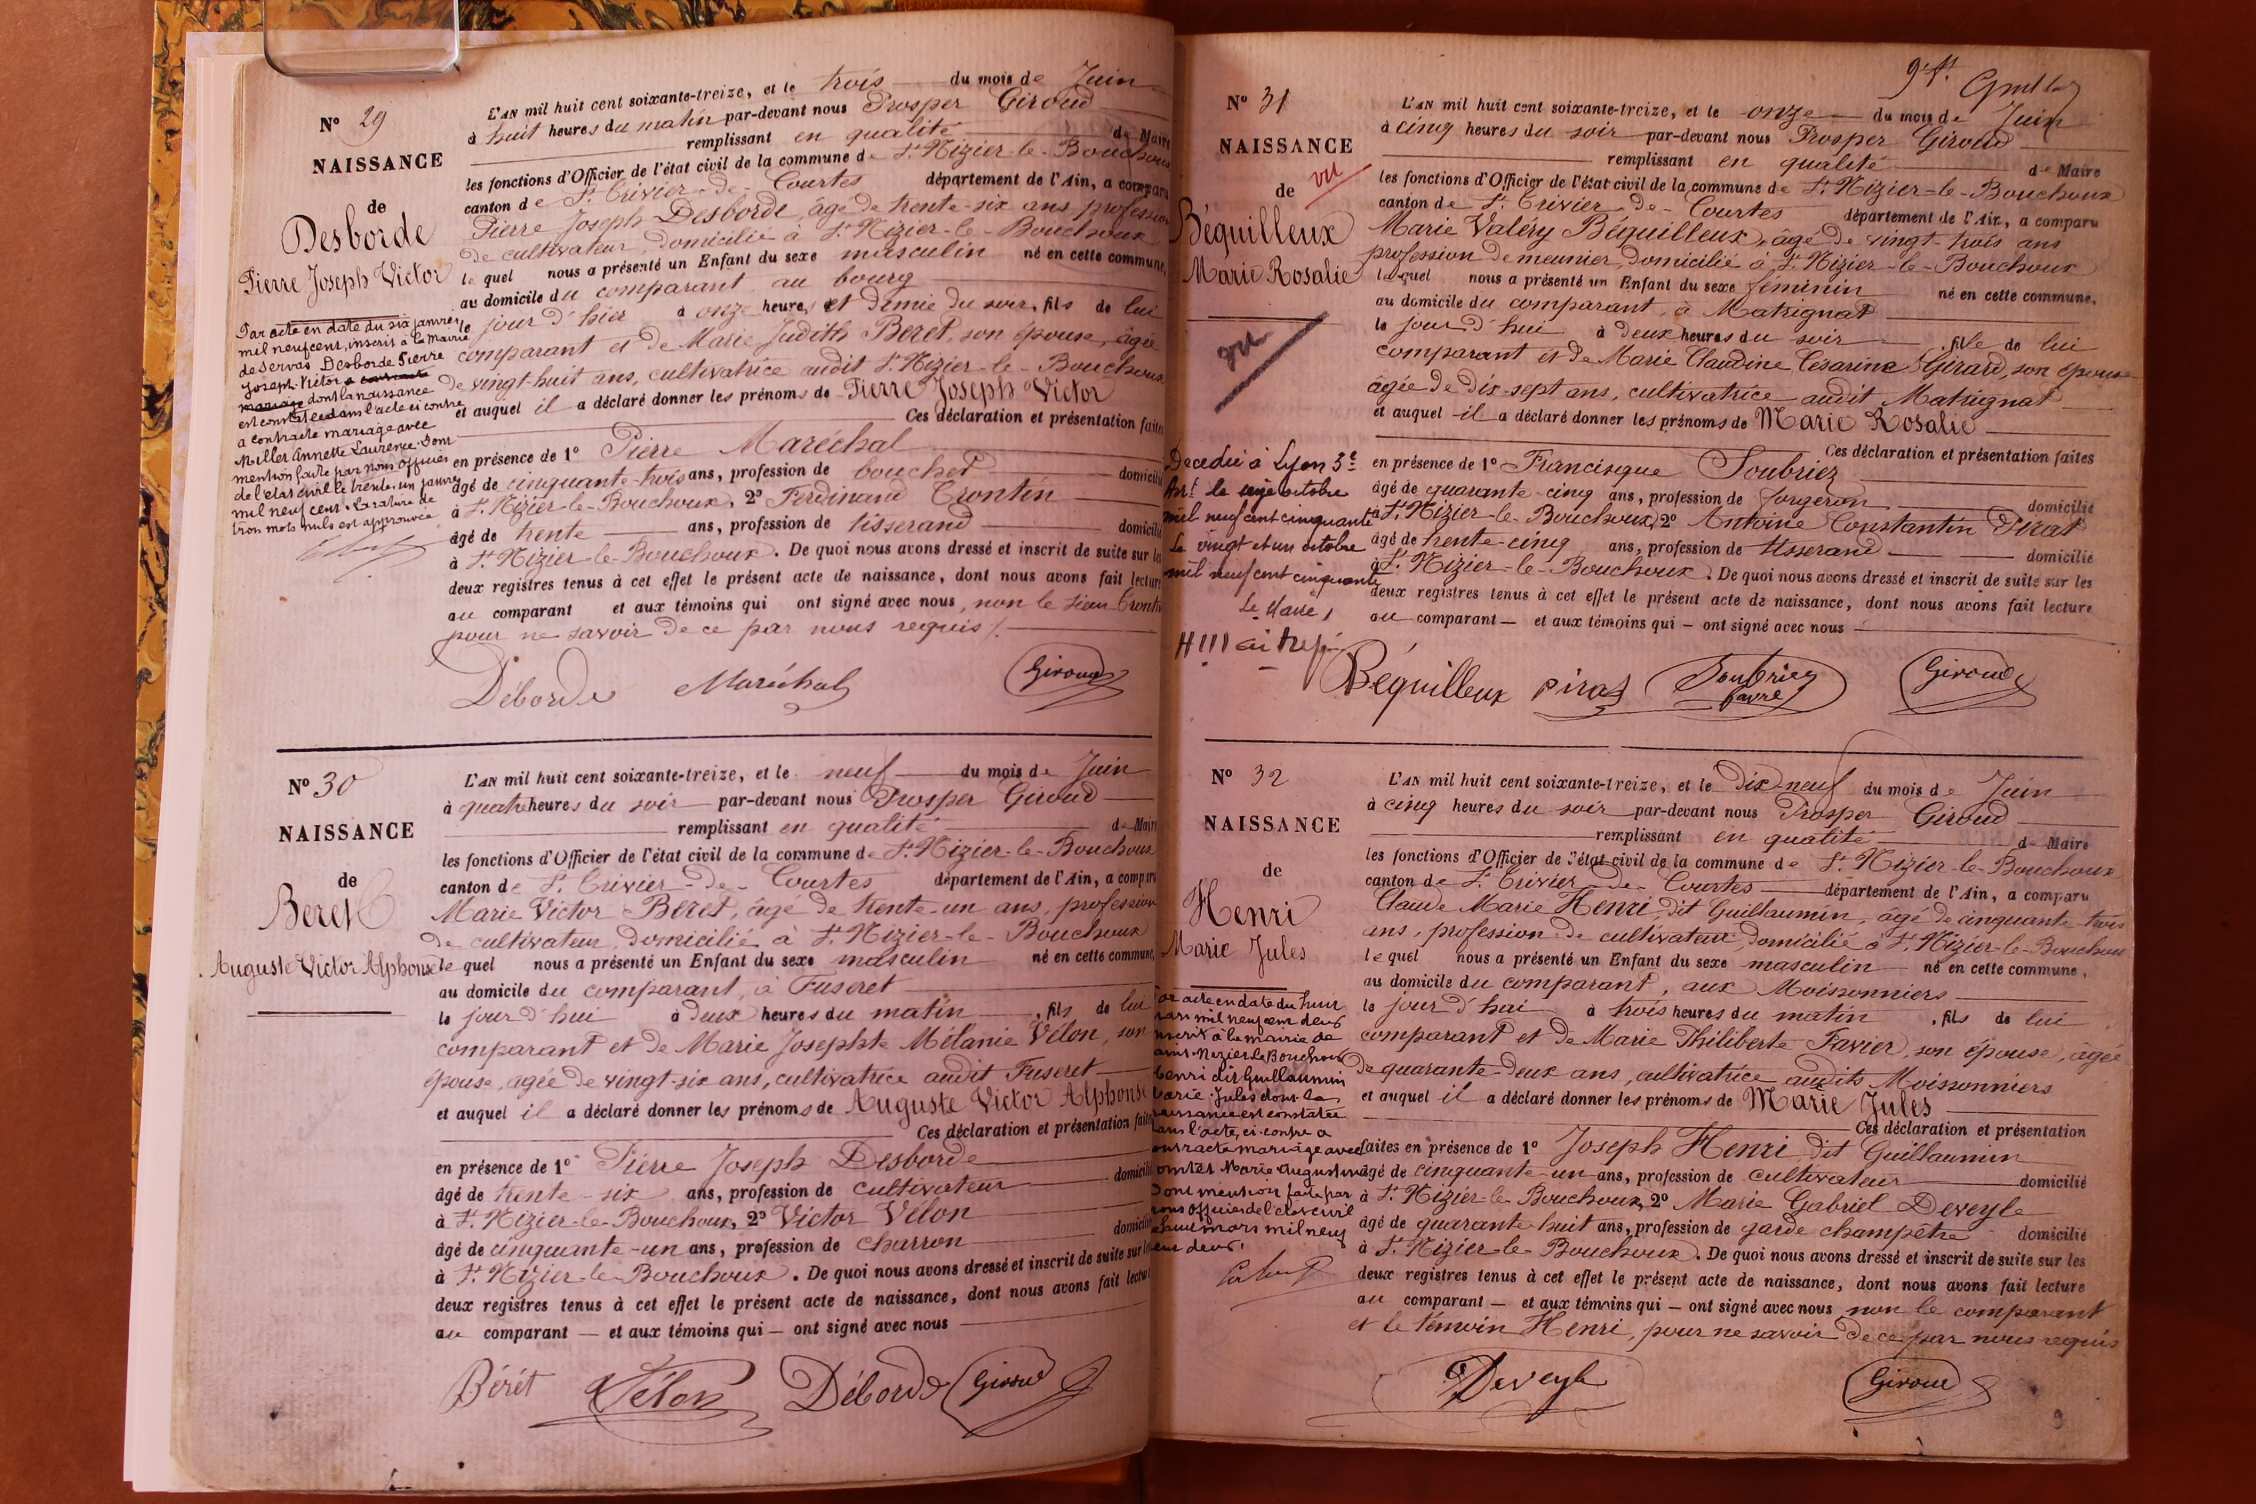 N° 29
NAISSANCE
de
Desborde
Pierre Joseph Victor
Par acte en date du six janvier
mil neuf cent, inscrit à la Mairie
de Servas Desborde Pierre
Joseph Victor a contracté
mariage dont la naissance
est constatée dans l'acte ci contre
a contracté mariage avec
Miller Annette Laurence. Dont
mention faite par nous officier
de l'état civil le trente-un janvier
mil neuf cent. Rature de
trois mots nuls est approuvée
L'AN mil huit cent soixante-treize, et le trois du mois de Juin
à huit heures du matin par-devant nous Prosper Giroud
remplissant en qualité de Maire
les fonctions d'Officier de l'état civil de la commune de St Nizier-le-Bouchoux
canton de St Trivier-de-Courtes département de l'Ain, a comparu
Pierre Joseph Desborde, âgé de trente-six ans profession
de cultivateur, domicilié à St Nizier-le-Bouchoux
lequel nous a présenté un Enfant du sexe masculin né en cette commune,
au domicile du comparant au bourg
le jour d'hier à onze heures et demie du soir, fils de lui
comparant et de Marie Judith Beret, son épouse, âgée
de vingt-huit ans, cultivatrice audit St Nizier-le-Bouchoux
et auquel il a déclaré donner les prénoms de Pierre Joseph Victor
Ces déclaration et présentation faites
en présence de 1° Pierre Maréchal
âgé de cinquante-trois ans, profession de boucher domicilié
à St Nizier-le-Bouchoux, 2° Ferdinand Trontin
âgé de trente ans, profession de tisserand domicilié
à St Nizier-le-Bouchoux. De quoi nous avons dressé et inscrit de suite sur les
deux registres tenus à cet effet le présent acte de naissance, dont nous avons fait lecture
au comparant et aux témoins qui ont signé avec nous, non le sieur Trontin
pour ne savoir de ce par nous requis /.
Déborde Maréchal Giroud
N° 30
NAISSANCE
de
Beret
Auguste Victor Alphonse
L'AN mil huit cent soixante-treize, et le neuf du mois de Juin
à quatre heures du soir par-devant nous Prosper Giroud
remplissant en qualité de Maire
les fonctions d'Officier de l'état civil de la commune de St Nizier-le-Bouchoux
canton de St Trivier-de-Courtes département de l'Ain, a comparu
Marie Victor Beret, âgé de trente-un ans, profession
de cultivateur, domicilié à St Nizier-le-Bouchoux
lequel nous a présenté un Enfant du sexe masculin né en cette commune,
au domicile du comparant, à Fuseret
le jour d'hui à deux heures du matin, fils de lui
comparant et de Marie Josephte Mélanie Vélon, son
épouse, âgée de vingt-six ans, cultivatrice audit Fuseret
et auquel il a déclaré donner les prénoms de Auguste Victor Alphonse
Ces déclaration et présentation faites
en présence de 1° Pierre Joseph Desborde
âgé de trente-six ans, profession de cultivateur domicilié
à St Nizier-le-Bouchoux, 2° Victor Vélon
âgé de cinquante-un ans, profession de charron domicilié
à St Nizier-le-Bouchoux. De quoi nous avons dressé et inscrit de suite sur les
deux registres tenus à cet effet le présent acte de naissance, dont nous avons fait lecture
au comparant — et aux témoins qui — ont signé avec nous
Bérét Vélon Déborde Giroud
N° 31
NAISSANCE
de
vu
Béquilleux
Marie Rosalie
vu
Décédée à Lyon 3e
Arrt le
mil neuf cent cinquante
Le vingt et un octobre
mil neuf cent cinquante
Le Maire,
L'AN mil huit cent soixante-treize, et le onze du mois de Juin
à cinq heures du soir par-devant nous Prosper Giroud
remplissant en qualité de Maire
les fonctions d'Officier de l'état civil de la commune de St Nizier-le-Bouchoux
canton de St Trivier-de-Courtes département de l'Ain, a comparu
Marie Valéry Béquilleux, âgé de vingt-trois ans
profession de meunier, domicilié à St Nizier-le-Bouchoux
lequel nous a présenté un Enfant du sexe féminin né en cette commune,
au domicile du comparant, à Matrignat
le jour d'hui à deux heures du soir, fille de lui
comparant et de Marie Claudine Césarine Girard, son épouse
âgée de dix-sept ans, cultivatrice audit Matrignat
et auquel il a déclaré donner les prénoms de Marie Rosalie
Ces déclaration et présentation faites
en présence de 1° Francisque Soubriez
âgé de quarante-cinq ans, profession de forgeron domicilié
à St Nizier-le-Bouchoux, 2° Antoine Constantin Pirat
âgé de trente-cinq ans, profession de tisserand domicilié
à St Nizier-le-Bouchoux. De quoi nous avons dressé et inscrit de suite sur les
deux registres tenus à cet effet le présent acte de naissance, dont nous avons fait lecture
au comparant — et aux témoins qui — ont signé avec nous
Béquilleux Pirat Soubriez Giroud
N° 32
NAISSANCE
de
Henri
Marie Jules
Par acte en date du huit
mars mil neuf cent deux
inscrit à la mairie de
Saint-Nizier le Bouchoux
Henri dit Guillaumin
Marie Jules dont la
naissance est constatée
dans l'acte ci-contre a
contracté mariage avec
Marie Augustine
Dont mention faite par
nous officier de l'état civil
le huit mars mil neuf
cent deux.
L'AN mil huit cent soixante-treize, et le dix-neuf du mois de Juin
à cinq heures du soir par-devant nous Prosper Giroud
remplissant en qualité de Maire
les fonctions d'Officier de l'état civil de la commune de St Nizier-le-Bouchoux
canton de St Trivier-de-Courtes département de l'Ain, a comparu
Claude Marie Henri, dit Guillaumin, âgé de cinquante-trois
ans, profession de cultivateur, domicilié à St Nizier-le-Bouchoux
lequel nous a présenté un Enfant du sexe masculin né en cette commune,
au domicile du comparant, aux Moissonniers
le jour d'hui à trois heures du matin, fils de lui
comparant et de Marie Philiberte Favier, son épouse, âgée
de quarante-deux ans, cultivatrice audits Moissonniers
et auquel il a déclaré donner les prénoms de Marie Jules
Ces déclaration et présentation
faites en présence de 1° Joseph Henri dit Guillaumin
âgé de cinquante-un ans, profession de cultivateur domicilié
à St Nizier-le-Bouchoux, 2° Marie Gabriel Deveyle
âgé de quarante-huit ans, profession de garde champêtre domicilié
à St Nizier-le-Bouchoux. De quoi nous avons dressé et inscrit de suite sur les
deux registres tenus à cet effet le présent acte de naissance, dont nous avons fait lecture
au comparant — et aux témoins qui — ont signé avec nous non le comparant
et le témoin Henri, pour ne savoir de ce par nous requis
Deveyle Giroud
9